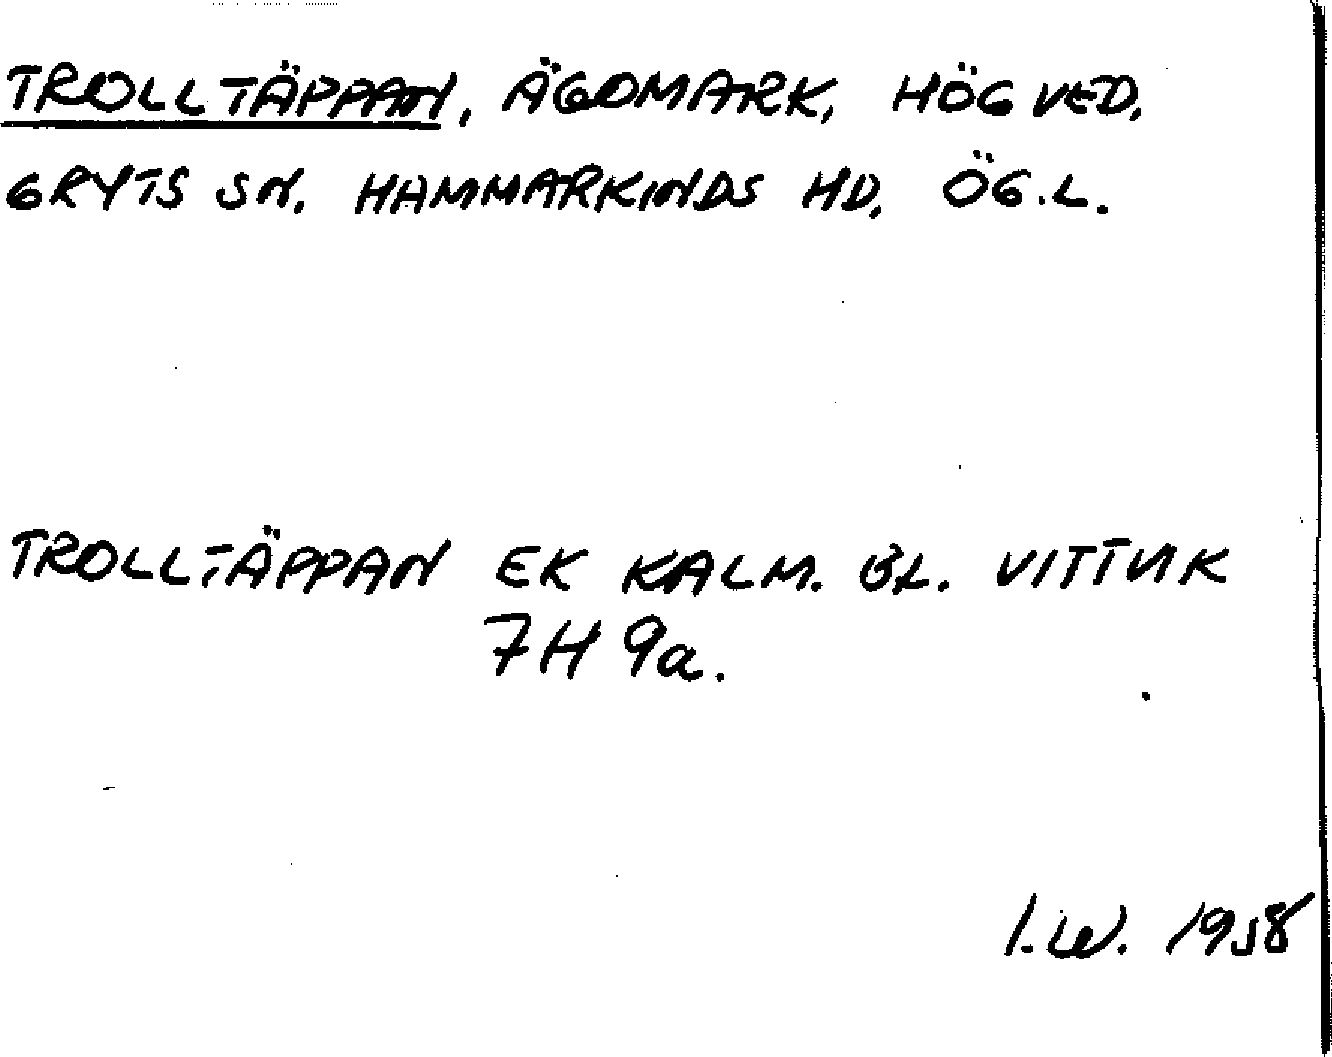 TROLLTÄPPAN, ÄGOMARK, HÖGVED,
GRYTS SN. HAMMARKINDS HD, ÖG.L.
TROLLTÄPPAN EK KALM. BL. VITTVIK
7H 9a.
I.W. 1958